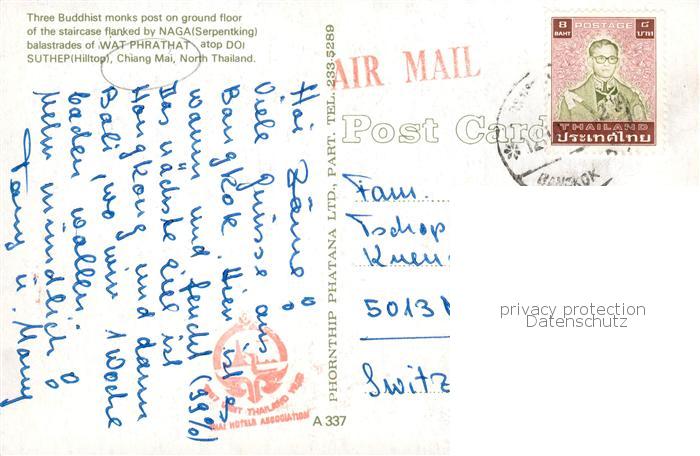 Three Buddhist monks post on ground floor
of the staircase flanked by NAGA(Serpentking)
balastrades of WAT PHRATHAT atop DOI
SUTHEP(Hilltop), Chiang Mai, North Thailand.
Hai Zäme!
Viele Grüsse aus
Bangkok. Hier ist es
warm und feucht (99%)
Das nächste Ziel ist
Hongkong und dann
Bali, wo wir 1 Woche
baden wollen!
Mehr mündlich!
u. Many
PHORNTHIP PHATANA LTD., PART. TEL. 233-5289
AIR MAIL
Post Card
8
BAHT
POSTAGE
๘
บาท
THAILAND
ประเทศไทย
BANGKOK
Fam.
Tschop
Kuen
5013
Switz
privacy protection
Datenschutz
VISIT THAILAND YEAR
THAI HOTELS ASSOCIATION
A 337